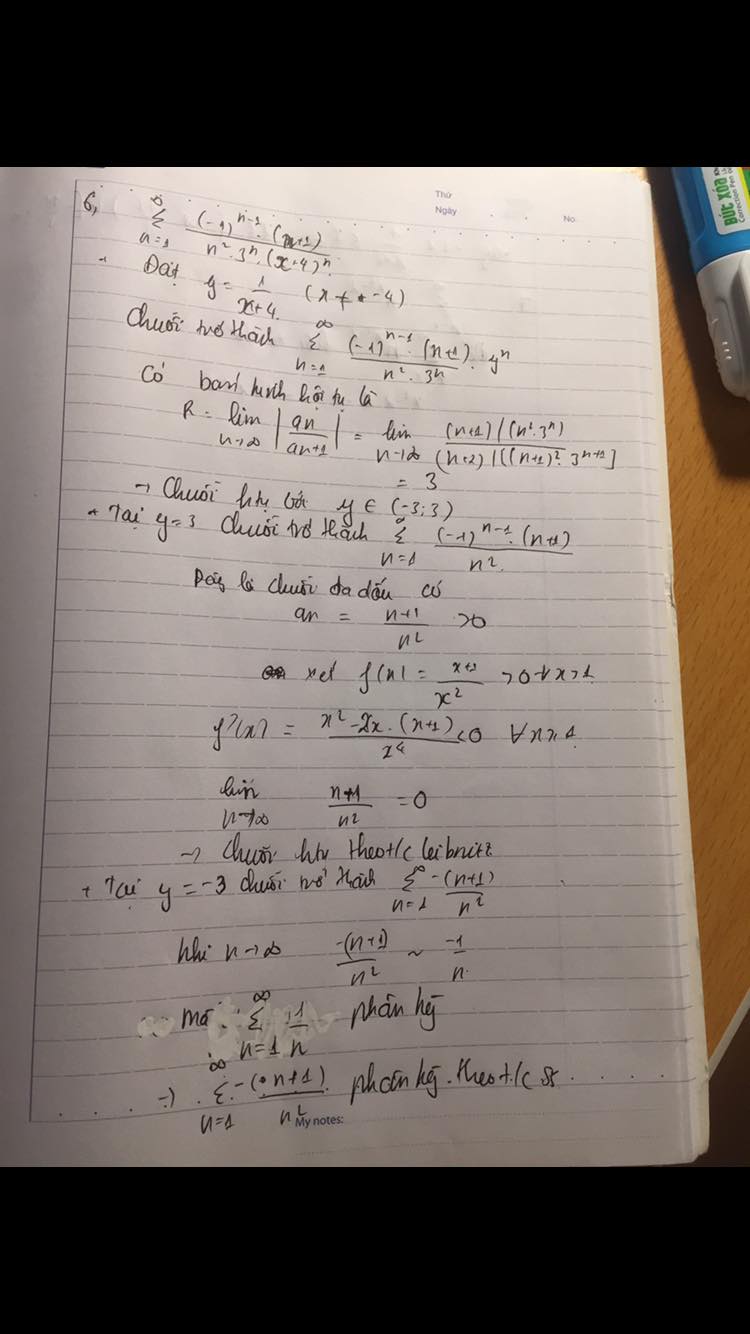 Thứ
Ngày
No
BÚT XÓA
Correction Pen
6, ∞ Σ n=1 (-1)^{n-1} . (n+1) / n² . 3ⁿ . (x+4)ⁿ
+ Đặt y = 1 / x+4 (x ≠ -4)
Chuỗi trở thành ∞ Σ n=1 (-1)^{n-1} . (n+1) / n² . 3ⁿ . yⁿ
Có bán kính hội tụ là
R = lim n→∞ | an / an+1 | = lim n→∞ (n+1) / (n² . 3ⁿ) / (n+2) / [(n+1)² . 3^{n+1}]
= 3
→ Chuỗi htụ với y ∈ (-3; 3)
+ Tại y = 3 chuỗi trở thành ∞ Σ n=1 (-1)^{n-1} . (n+1) / n²
Đây là chuỗi đan dấu có
an = n+1 / n² > 0
xét f(x) = x+1 / x² > 0 ∀ x > 1
f'(x) = x² - 2x . (x+1) / x⁴ < 0 ∀ x > 1
lim n→∞ n+1 / n² = 0
→ Chuỗi htụ theo t/c leibnitz
+ Tại y = -3 chuỗi trở thành ∞ Σ n=1 -(n+1) / n²
khi n→∞ -(n+1) / n² ~ -1 / n
mà ∞ Σ n=1 1 / n phân kỳ
→ ∞ Σ n=1 -(n+1) / n² phân kỳ . theo t/c SS
My notes: